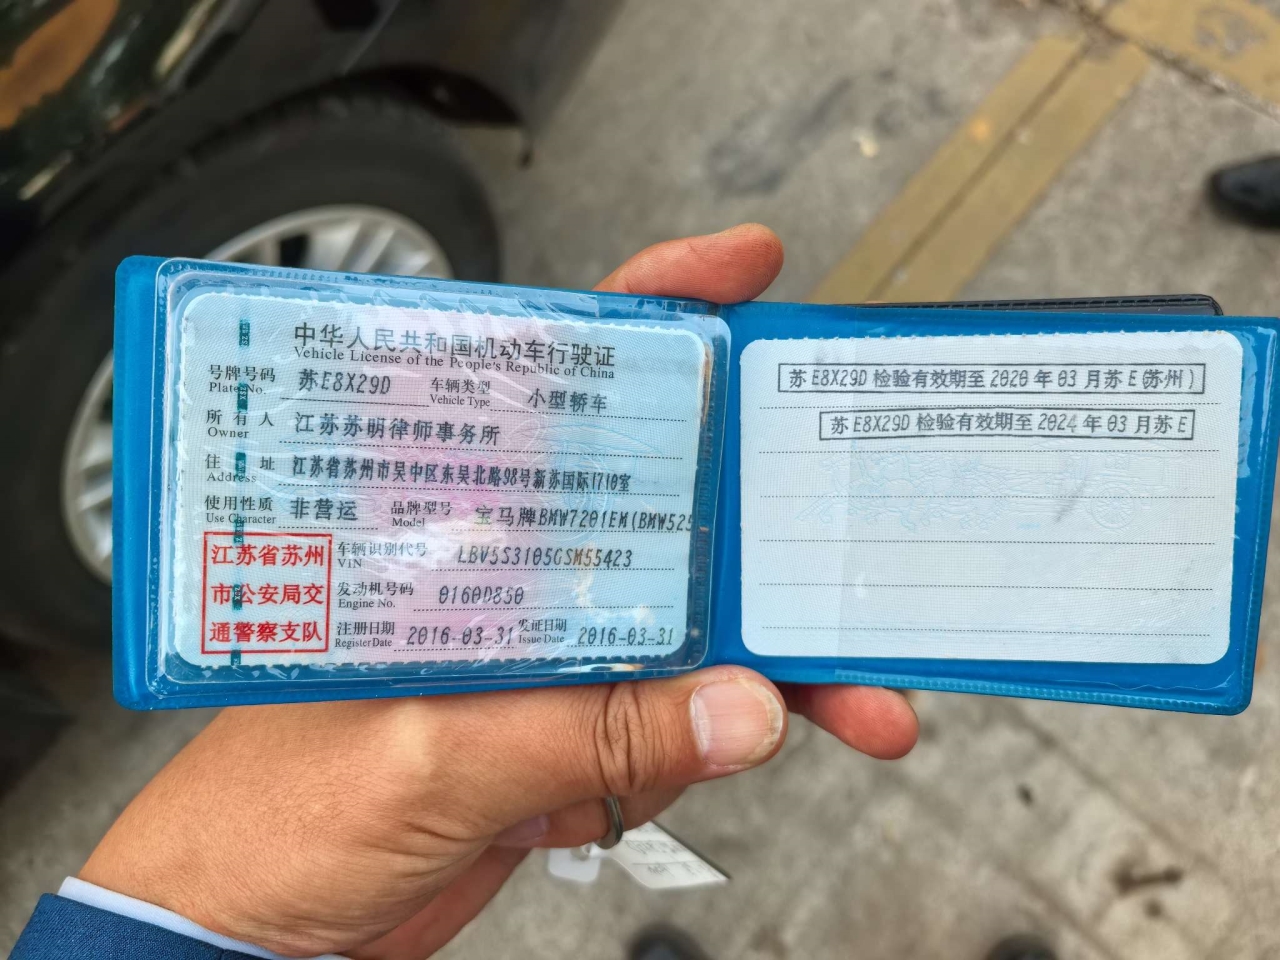 中华人民共和国机动车行驶证
Vehicle License of the People's Republic of China
号牌号码 苏E8X29D 车辆类型 小型轿车
Plate No. Vehicle Type
所有人 江苏苏明律师事务所
Owner
住址 江苏省苏州市吴中区东吴北路98号新苏国际1710室
Address
使用性质 非营运 品牌型号 宝马牌BMW7201EM(BMW525
Use Character Model
江苏省苏州
市公安局交
通警察支队
车辆识别代号 LBV5S3105GSM55423
VIN
发动机号码 0160D850
Engine No.
注册日期 2016-03-31 发证日期 2016-03-31
Register Date Issue Date
苏E8X29D 检验有效期至 2020 年 03 月苏 E (苏州)
苏E8X29D 检验有效期至 2024 年 03 月苏 E